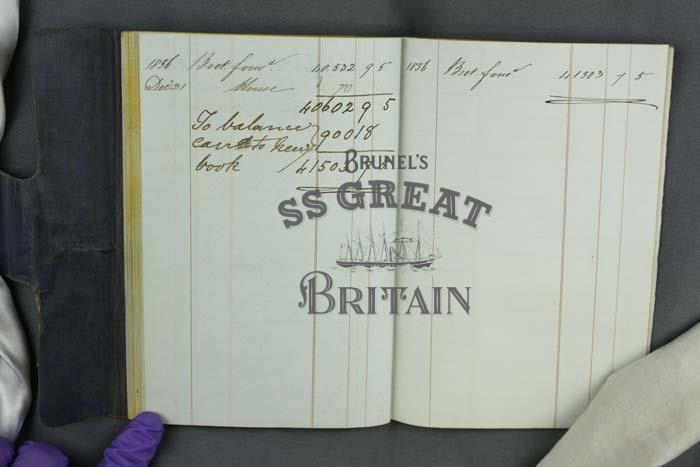 1836 Brot forwd. 40,532 9 5
Dec 31 House 70
40602 9 5
To balance
carr to new 900 18
book 41503 7 5
1836 Brot forwd 41503 7 5
BRUNEL'S
SS GREAT
BRITAIN